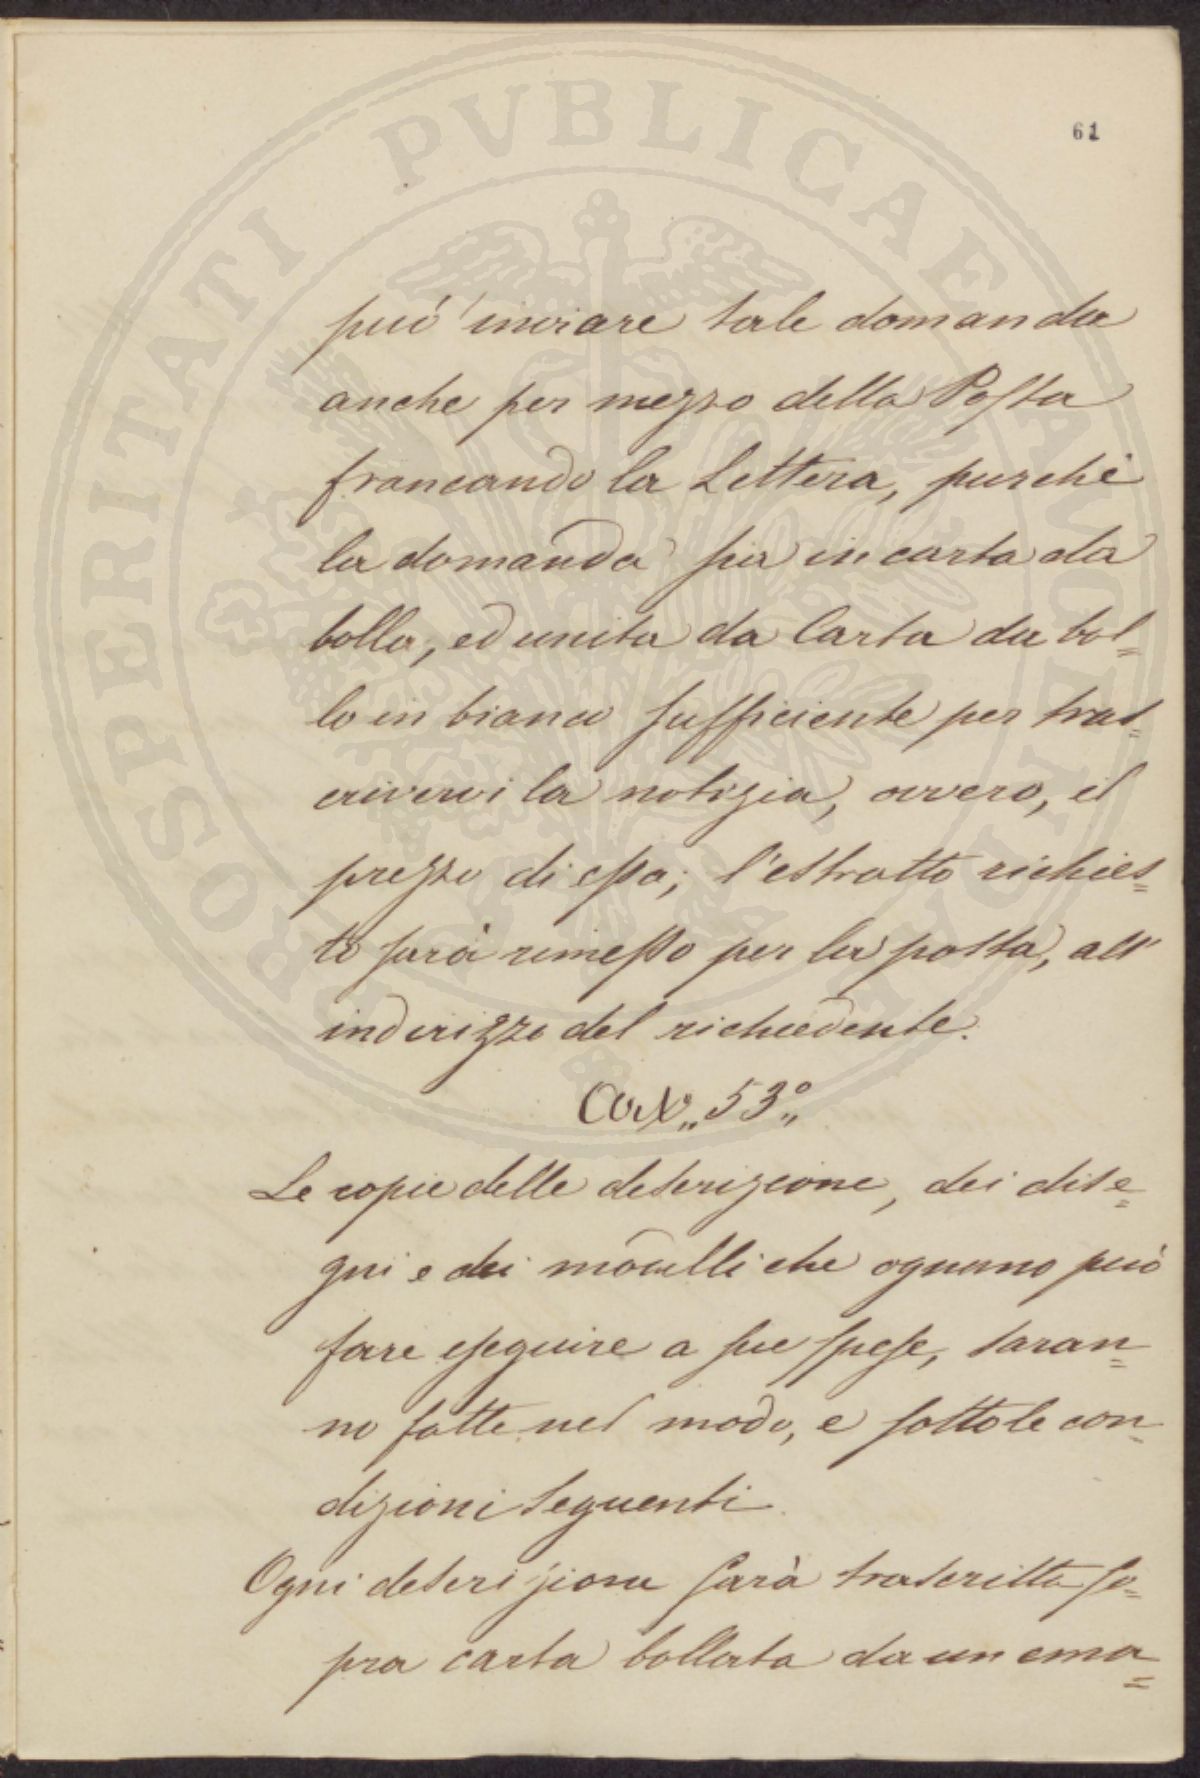 PROSPERITATI PVBLICAE AVGENDAE
61
può inviare tale domanda
anche per mezzo della Posta
francando la Lettera, purchè
la domanda sia in carta da
bollo, ed unita da Carta da bol=
lo in bianco sufficiente per tras=
crivervi la notizia, ovvero, il
prezzo di essa; l'estratto richies=
to sarà rimesso per la posta, all'
inderizzo del richiedente.
Art. 53°
Le copie delle descrizione, dei dise=
gni e dei modelli che ognuno può
fare eseguire a sue spese, saran=
no fatte nel modo, e sotto le con=
dizioni seguenti.
Ogni descrizione sarà trascritta so=
pra carta bollata da un ema=